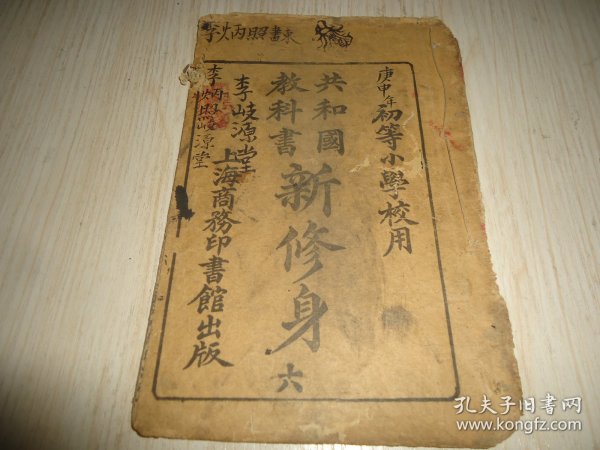 李炳照書東
庚申年初等小學校用
共和國
教科書
新修身
六
李岐源堂
上海商務印書館出版
李炳照岐源堂
孔夫子旧書网
www.kongfz.com